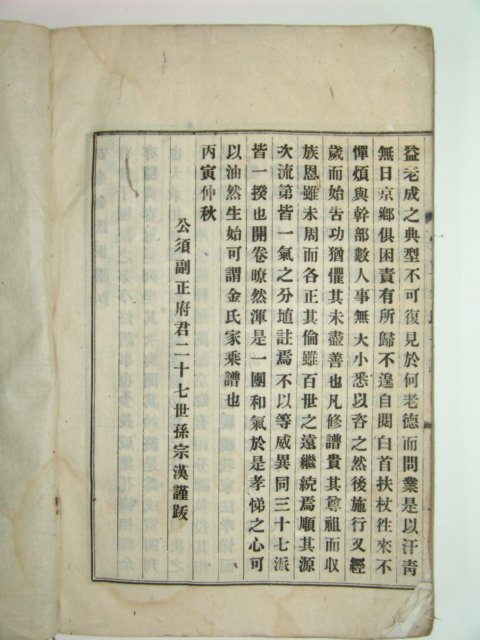 益老成之典型不可復見於何老德而問業是以汗靑
無日京鄕俱困責有所歸不遑自閱白首扶杖徃來不
憚煩與幹部數人事無大小悉以咨之然後施行又經
歲而始告功猶懼其未盡善也凡修譜貴其尊祖而収
族恩雖未周而各正其倫雖百世之遠繼統焉順其源
次流第皆一氣之分埴註焉不以等威異同三十七派
皆一揆也開卷暸然渾是一團和氣於是孝悌之心可
以油然生始可謂金氏家乘譜也
丙寅仲秋
公須副正府君二十七世孫宗漢謹跋